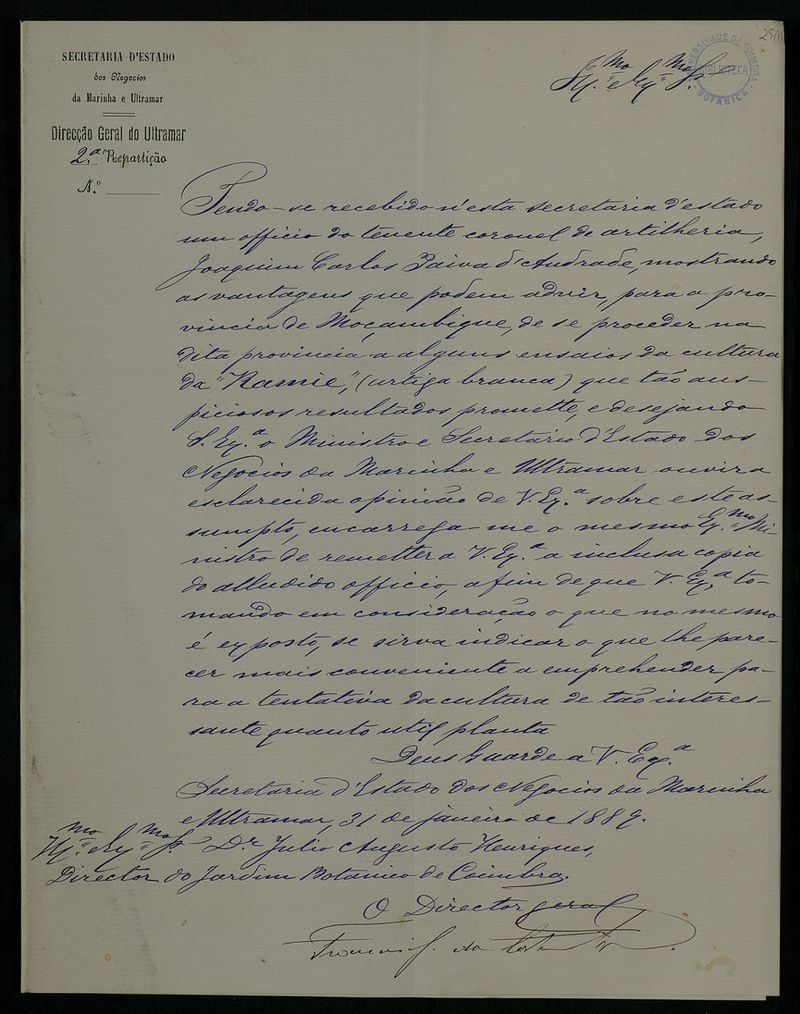 25(1)
UNIVERSIDADE DE COIMBRA
BIBLIOTECA
BOTANICA
SECRETARIA D'ESTADO
dos Negocios
da Marinha e Ultramar
Direcção Geral do Ultramar
2.ª Repartição
N.º
Ill.mo e Ex.mo Sr.
Tendo-se recebido n'esta secretaria d'estado
um officio do tenente coronel de artilheria,
Joaquim Carlos Paiva d'Andrade, mostrando
as vantagens que podem advir, para a pro-
vincia de Moçambique, de se proceder na
dita provincia a alguns ensaios da cultura
da "Ramie", (urtiga branca) que tão aus-
piciosos resultados promette, e desejando
S. Ex.ª o Ministro e Secretario d'Estado dos
Negocios da Marinha e Ultramar ouvir a
esclarecida opinião de V. Ex.ª sobre este as-
sumpto, encarrega-me o mesmo Ex.mo Mi-
nistro de remetter a V. Ex.ª a inclusa copia
do alludido officio, a fim de que V. Ex.ª, to-
mando em consideração o que no mesmo
é exposto, se sirva indicar o que lhe pare-
cer mais conveniente a emprehender pa-
ra a tentativa da cultura de tão interes-
sante quanto util planta
Deus Guarde a V. Ex.ª
Secretaria d'Estado dos Negocios da Marinha
e Ultramar, 31 de janeiro de 1889.
Ill.mo e Ex.mo Sr. Dr. Julio Augusto Henriques,
Director do Jardim Botanico de Coimbra.
O Director geral
Francis. da Costa